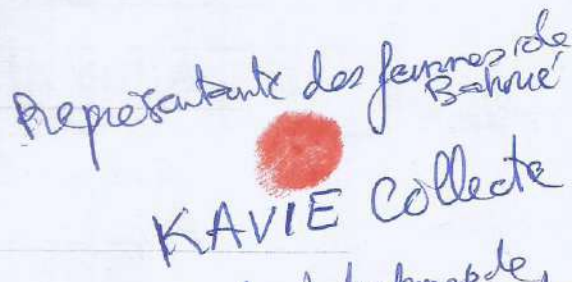 Représentante des femmes de
Bahoué
KAVIE Collecte